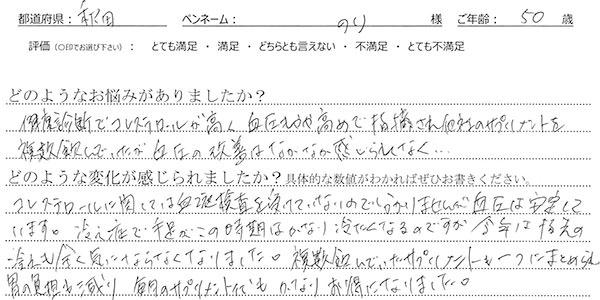 都道府県： 秋田 ペンネーム： のり 様 ご年齢： 50 歳
評価（○印でお選び下さい）： とても満足 ・ 満足 ・ どちらとも言えない ・ 不満足 ・ とても不満足
どのようなお悩みがありましたか？
健康診断でコレステロールが高く 血圧もやや高めで指摘され他社のサプリメントを
複数飲んでいたが血圧の改善はなかなか感じられなく…
どのような変化が感じられましたか？具体的な数値がわかればぜひお書きください。
コレステロールに関しては血液検査を受けていないのでわかりませんが血圧は安定して
います。冷え症で手足がこの時期はかなり冷たくなるのですが今年は指先の
冷えも余り気にならなくなりました。複数飲んでいたサプリメントも一つにまとめられ
胃の負担も減り 毎月のサプリメント代も かなりお得になりました。